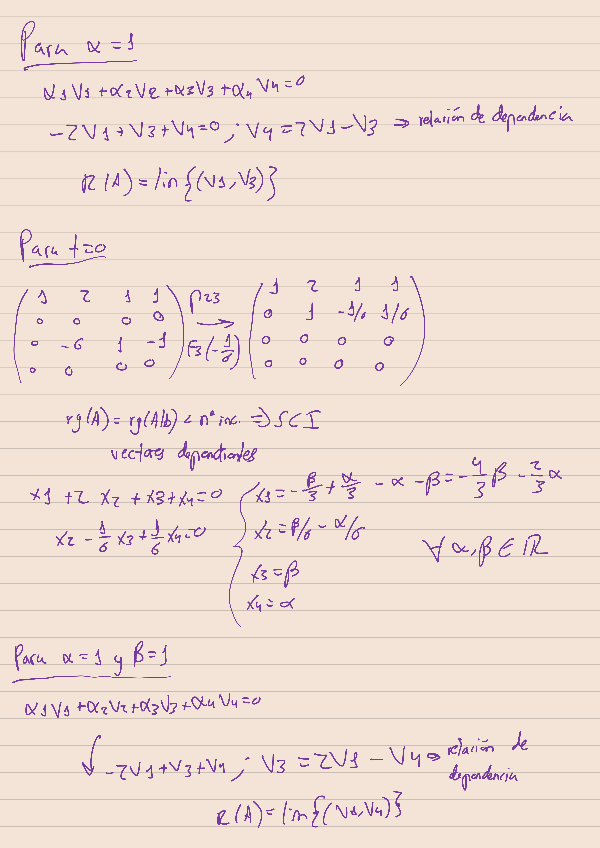 Para α = 1
α1V1 + α2V2 + α3V3 + α4V4 = 0
-2V1 + V3 + V4 = 0 ; V4 = 2V1 - V3 ⇒ relación de dependencia
R(A) = lin{(V1, V3)}
Para t=0
( 1 2 1 1 ) P23 ( 1 2 1 1 )
( 0 0 0 0 ) → ( 0 1 -1/6 1/6 )
( 0 -6 1 -1 ) F3(-1/6) ( 0 0 0 0 )
( 0 0 0 0 ) ( 0 0 0 0 )
rg(A) = rg(A|b) < nº inc. ⇒ SCI
vectores dependientes
x1 + 2 x2 + x3 + x4 = 0 { x1 = -β/3 + α/3 - α - β = -4/3 β - 2/3 α
x2 - 1/6 x3 + 1/6 x4 = 0 x2 = β/6 - α/6 ∀ α, β ∈ ℝ
x3 = β
x4 = α
Para α = 1 y β = 1
α1V1 + α2V2 + α3V3 + α4V4 = 0
-2V1 + V3 + V4 ; V3 = 2V1 - V4 ⇒ relación de
dependencia
R(A) = lin{(V1, V4)}